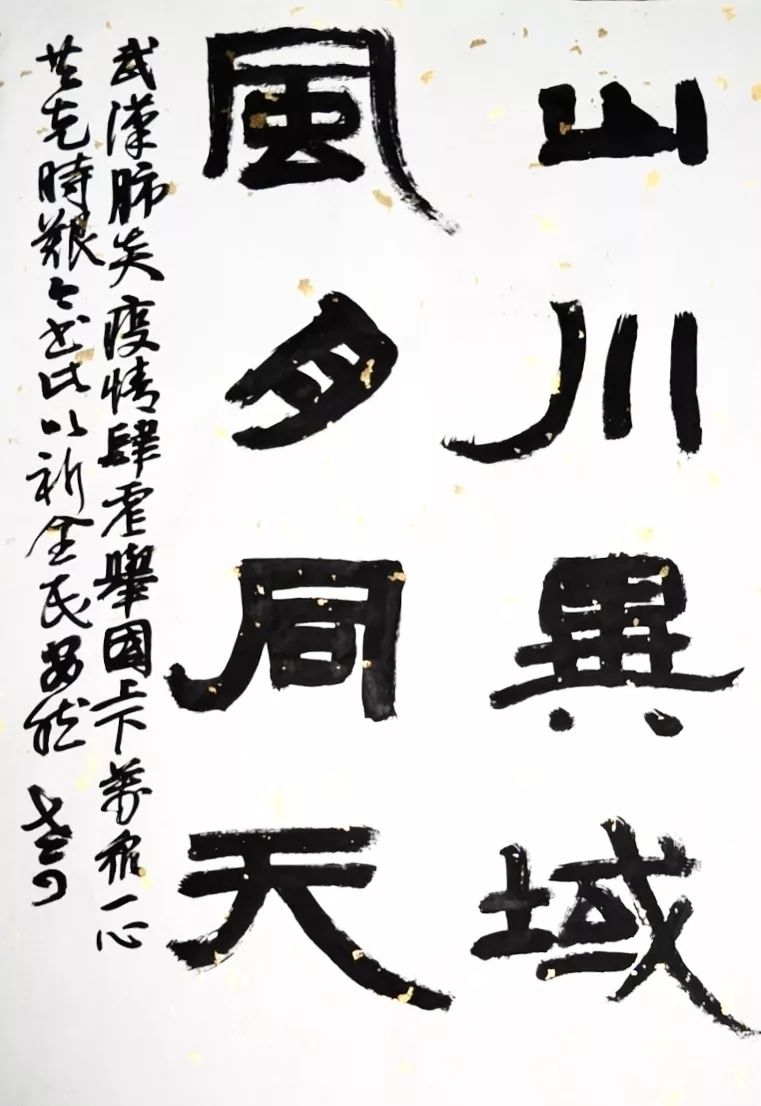 山川異域
風月同天
武漢肺炎疫情肆虐舉國上下萬衆一心
共克時艱今書此以祈全民安然